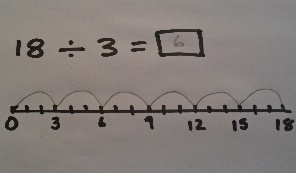 18 ÷ 3 = 6
0 3 6 9 12 15 18